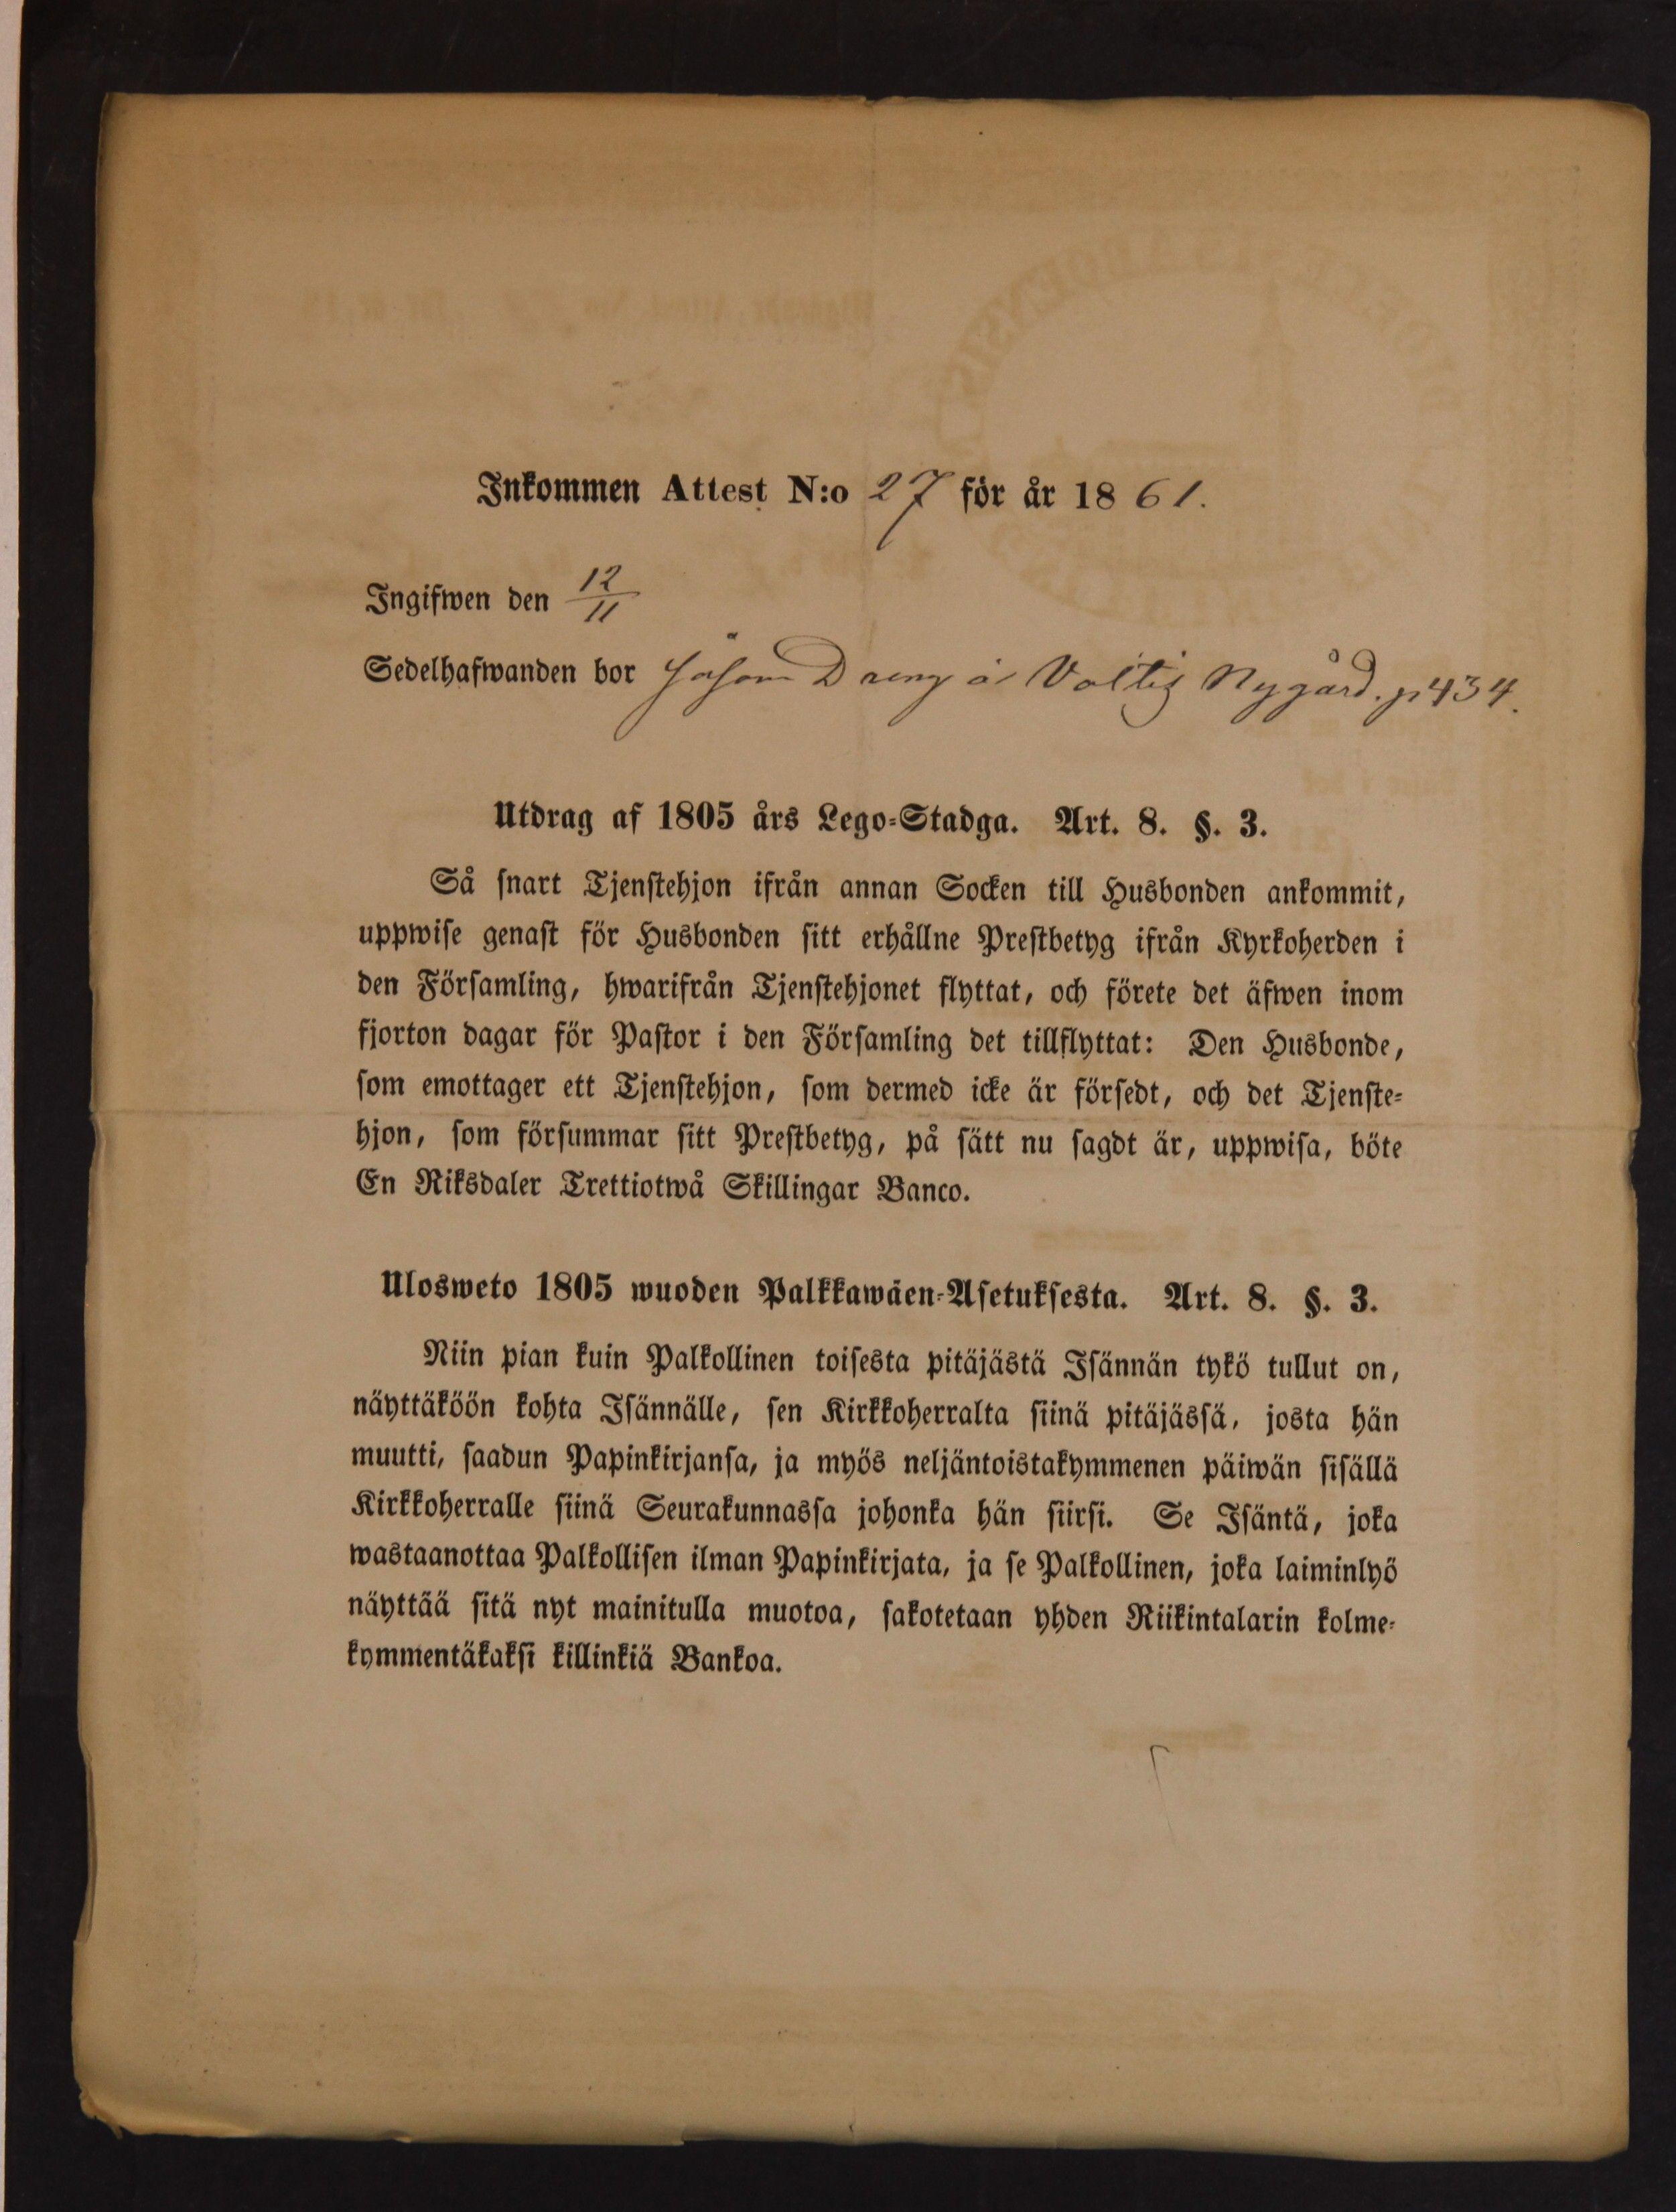 Inkommen Attest N:o 27 för år 1861.
Ingifwen den 12/11
Sedelhafwanden bor såsom Dreng å Voltis Nygård. p 434.
Utdrag af 1805 års Lego-Stadga. Art. 8. §. 3.
Så snart Tjenstehjon ifrån annan Socken till Husbonden ankommit,
uppwise genast för Husbonden sitt erhållne Prestbetyg ifrån Kyrkoherden i
den Församling, hwarifrån Tjenstehjonet flyttat, och förete det äfwen inom
fjorton dagar för Pastor i den Församling det tillflyttat: Den Husbonde,
som emottager ett Tjenstehjon, som dermed icke är försedt, och det Tjenste-
hjon, som försummar sitt Prestbetyg, på sätt nu sagdt är, uppwisa, böte
En Riksdaler Trettiotwå Skillingar Banco.
Ulosweto 1805 wuoden Palkkawäen-Asetuksesta. Art. 8. §. 3.
Niin pian kuin Palkollinen toisesta pitäjästä Isännän tykö tullut on,
näyttäköön kohta Isännälle, sen Kirkkoherralta siinä pitäjässä, josta hän
muutti, saadun Papinkirjansa, ja myös neljäntoistakymmenen päiwän sisällä
Kirkkoherralle siinä Seurakunnassa johonka hän siirsi. Se Isäntä, joka
wastaanottaa Palkollisen ilman Papinkirjata, ja se Palkollinen, joka laiminlyö
näyttää sitä nyt mainitulla muotoa, sakotetaan yhden Riikintalarin kolme-
kymmentäkaksi killinkiä Bankoa.